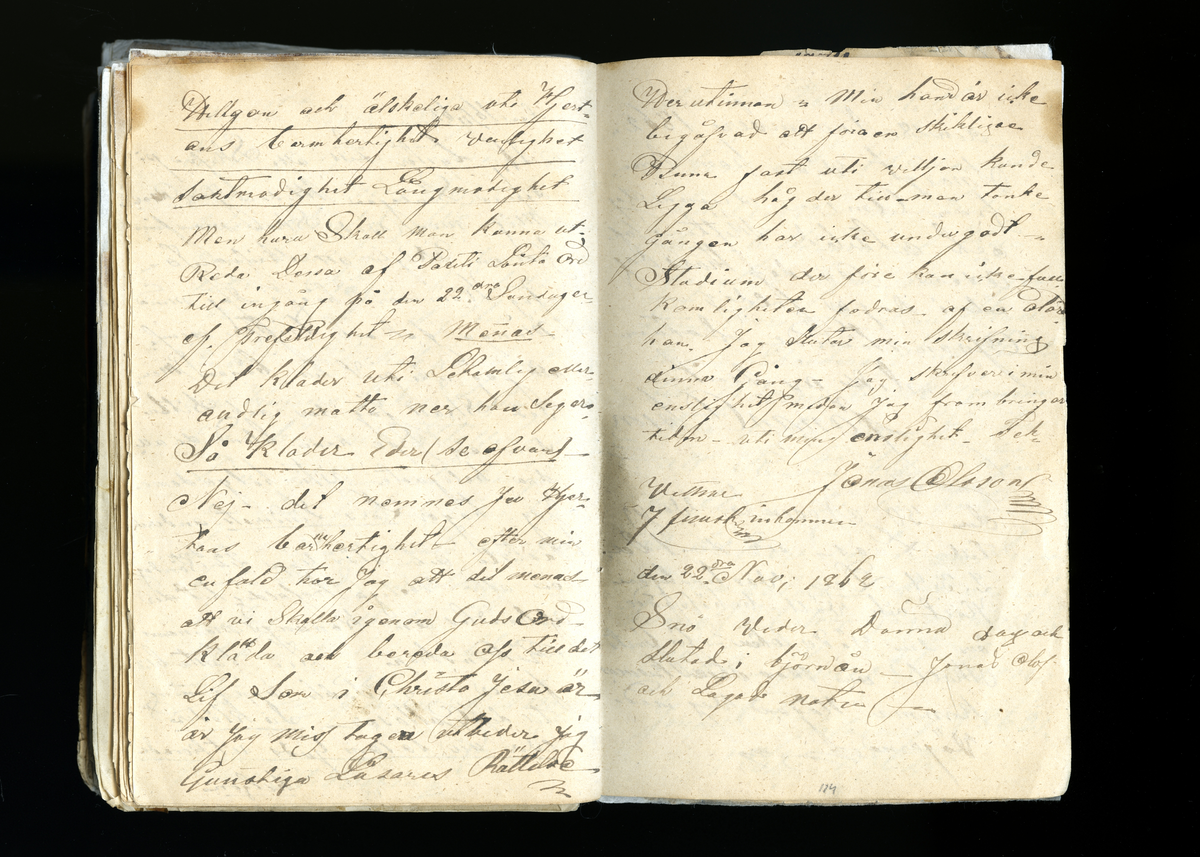 Hellgon och älskeliga uti Hjert-
ans barmhertighet, venlighet
Saktmodighet Långmodighet
Men huru Skall man kunna ut-
Reda Dessa af Pauli Sånta Ord
till ingång på den 22dra Sondagen
ef. Trefaldighet Menas
Det klader uti Lekamlig eller
andlig matto ner han Seger
Så klader Eder (se ofvan)
Nej det nemnes Ju Hjer-
tans barmhertighet efter min
enfald tror Jag att det menas
att vi Skolla igenom Guds Ord
klada och bereda oss till det
Lif Som i Christo Jesu är
är Jag misstagen utbeder Jag
Gunstiga Läsares Rättelse
Der utinnan Min hand är icke
begåfvad att föra en skickligae
Penna fast uti velljan kunde
Ligga håg der till man tanke
gången har icke undergått
Stadium der före kan icke full-
komligheten fodras af en Olär-
han. Jag Slutar min Skrifning
dinna Gång Jag skrifver i min
enslighet medan Jag frambringer
tiden uti ming enslighet
Jonas Olsson
Vittnar
7 finsk inkommer
den 22dra Nov, 1862
Snö Veder Denna dag och
Slutade i björnön Jonas Olof
och Lagade noten
124